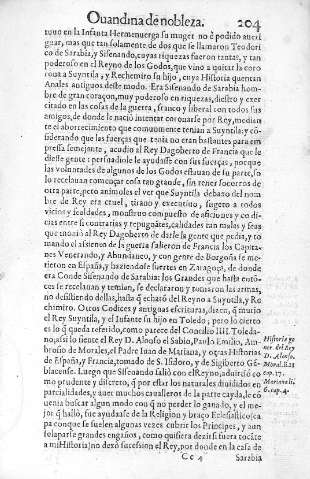 Ouandina de nobleza. 204
tuuo en la Infanta Hermenuerga su muger no è podido aueri
guar, mas que tan solamente de dos que se llamaron Teodori
co de Sarabia, y Sisenando, cuyas riquezas fueron tantas, y tan
poderoso en el Reyno de los Godos, que vino a quitar la coro
rona a Suyntila, y Rechemiro su hijo, cuya Historia quentan
Anales antiguos deste modo. Era Sisenando de Sarabia hom-
bre de gran coraçon, muy poderoso en riquezas, diestro y exer
citado en las cosas de la guerra, franco y liberal con todos sus
amigos, de donde le nació intentar coronarse por Rey, median
te el aborrecimiento que comunmente tenian a Suyntila: y cõ-
siderando que las fuerças que tenia no eran bastantes para em
pressa semejante, acudio al Rey Dagoberto de Francia que le
diesse gente: persuadiole le ayudasse con sus fuerças, porque
las voluntades de algunos de los Godos estauan de su parte, so
lo recelauan començar cosa tan grande, sin tener socorros de
otra parte, pero animoles el ver que Suyntila debaxo del nom
bre de Rey era cruel, tirano y executiuo, sugeto a todos
vicios y fealdades, monstruo compuesto de aficiones y co di-
cias entre si contrarias y repugnãtes, calidades tan malas y feas
que mouiò al Rey Dagoberto de darle la gente que pedia, y to
mando el assiento de la guerra salieron de Francia los Capita-
nes Venerando, y Abundanco, y con gente de Borgoña se me-
tieron en España, y haziendose fuertes en Zaragoça, de donde
era Conde Sisenando de Sarabia: los Grandes que hasta entõ-
ces se recelauan y temian, se declararon y tomaron las armas,
no desistiendo dellas, hasta q̃ echarõ del Reyno a Suyntila, y Re
chimiro. Otros Codices y antiguas escrituras, dizen, q̃ murio
el Rey Suyntila, y el Infante su hijo en Toledo; pero lo cierto
es lo q̃ queda referido, como parece del Concilio IIII. Toleda-
no, assi lo siente el Rey D. Alonso el Sabio, Paulo Emilio, Am-
brosio de Morales, el Padre Iuan de Mariana, y otras Historias
de España, y Francia, tomado de S. Isidoro, y de Sigiberto Gẽ-
blacense. Luego que Sisenando saliò con el Reyno, aduirtiò co
mo prudente y discreto, q̃ por estar los naturales diuididos en
parcialidades, y auer muchos caualleros de la parte cayda, le cõ
uenia buscar algun modo con q̃ no perder lo ganado, y el me-
jor q̃ hallò, fue ayudarse de la Religion y braço Eclesiastico (ca
pa conque se suelen algunas vezes cubrir los Principes, y aun
solaparle grandes engaños, como quisiera dezir si fuera tocãte
a mi Historia) no dexò sucession el Rey, por donde en la casa de
Cc 4 Sarabia
Historia ge
ner. del Rey
D. Alonso.
Moral. li. 12
cap. 17.
Mariana li.
6. cap. 4.